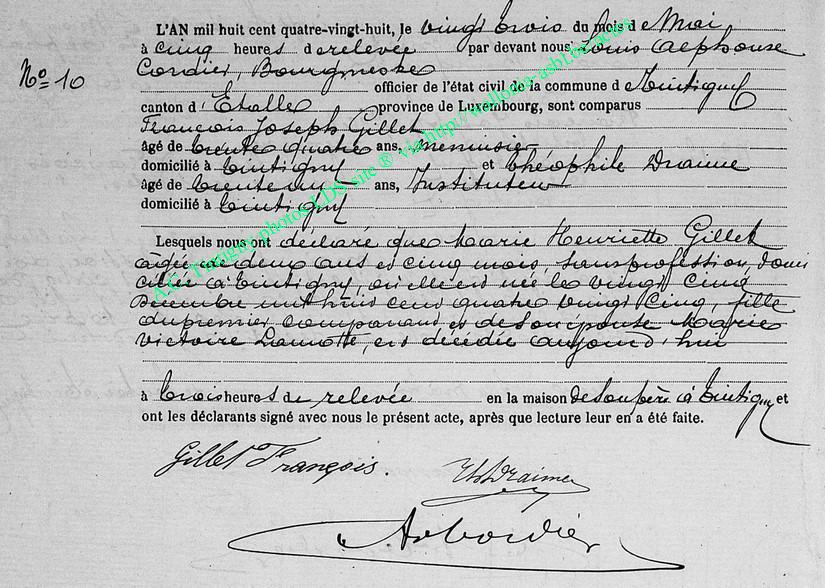 L'AN mil huit cent quatre-vingt-huit, le vingt trois du mois de Mai
à cinq heures de relevée par devant nous Louis Alphonse
N° 10
Cordier, Bourgmestre
officier de l'état civil de la commune de Tintigny
canton d'Etalle province de Luxembourg, sont comparus
François Joseph Gillet
âgé de trente quatre ans, menuisier
domicilié à Tintigny et Théophile Draime
âgé de trente un ans, Instituteur
domicilié à Tintigny
Lesquels nous ont déclaré que Marie Henriette Gillet
agée de deux ans et cinq mois, sans profession, domi
ciliée à Tintigny, où elle est née le vingt cinq
Décembre mil huit cent quatre vingt cinq, fille
du premier comparant et de son épouse Marie
Victoire Lamotte, est décédée aujourd'hui
à trois heures de relevée en la maison de son père à Tintigny et
ont les déclarants signé avec nous le présent acte, après que lecture leur en a été faite.
Gillet François.
Th Draime
A Cordier
A.C. Tintigny photos LDS site ® via http://wallonia-asbl.be/actes